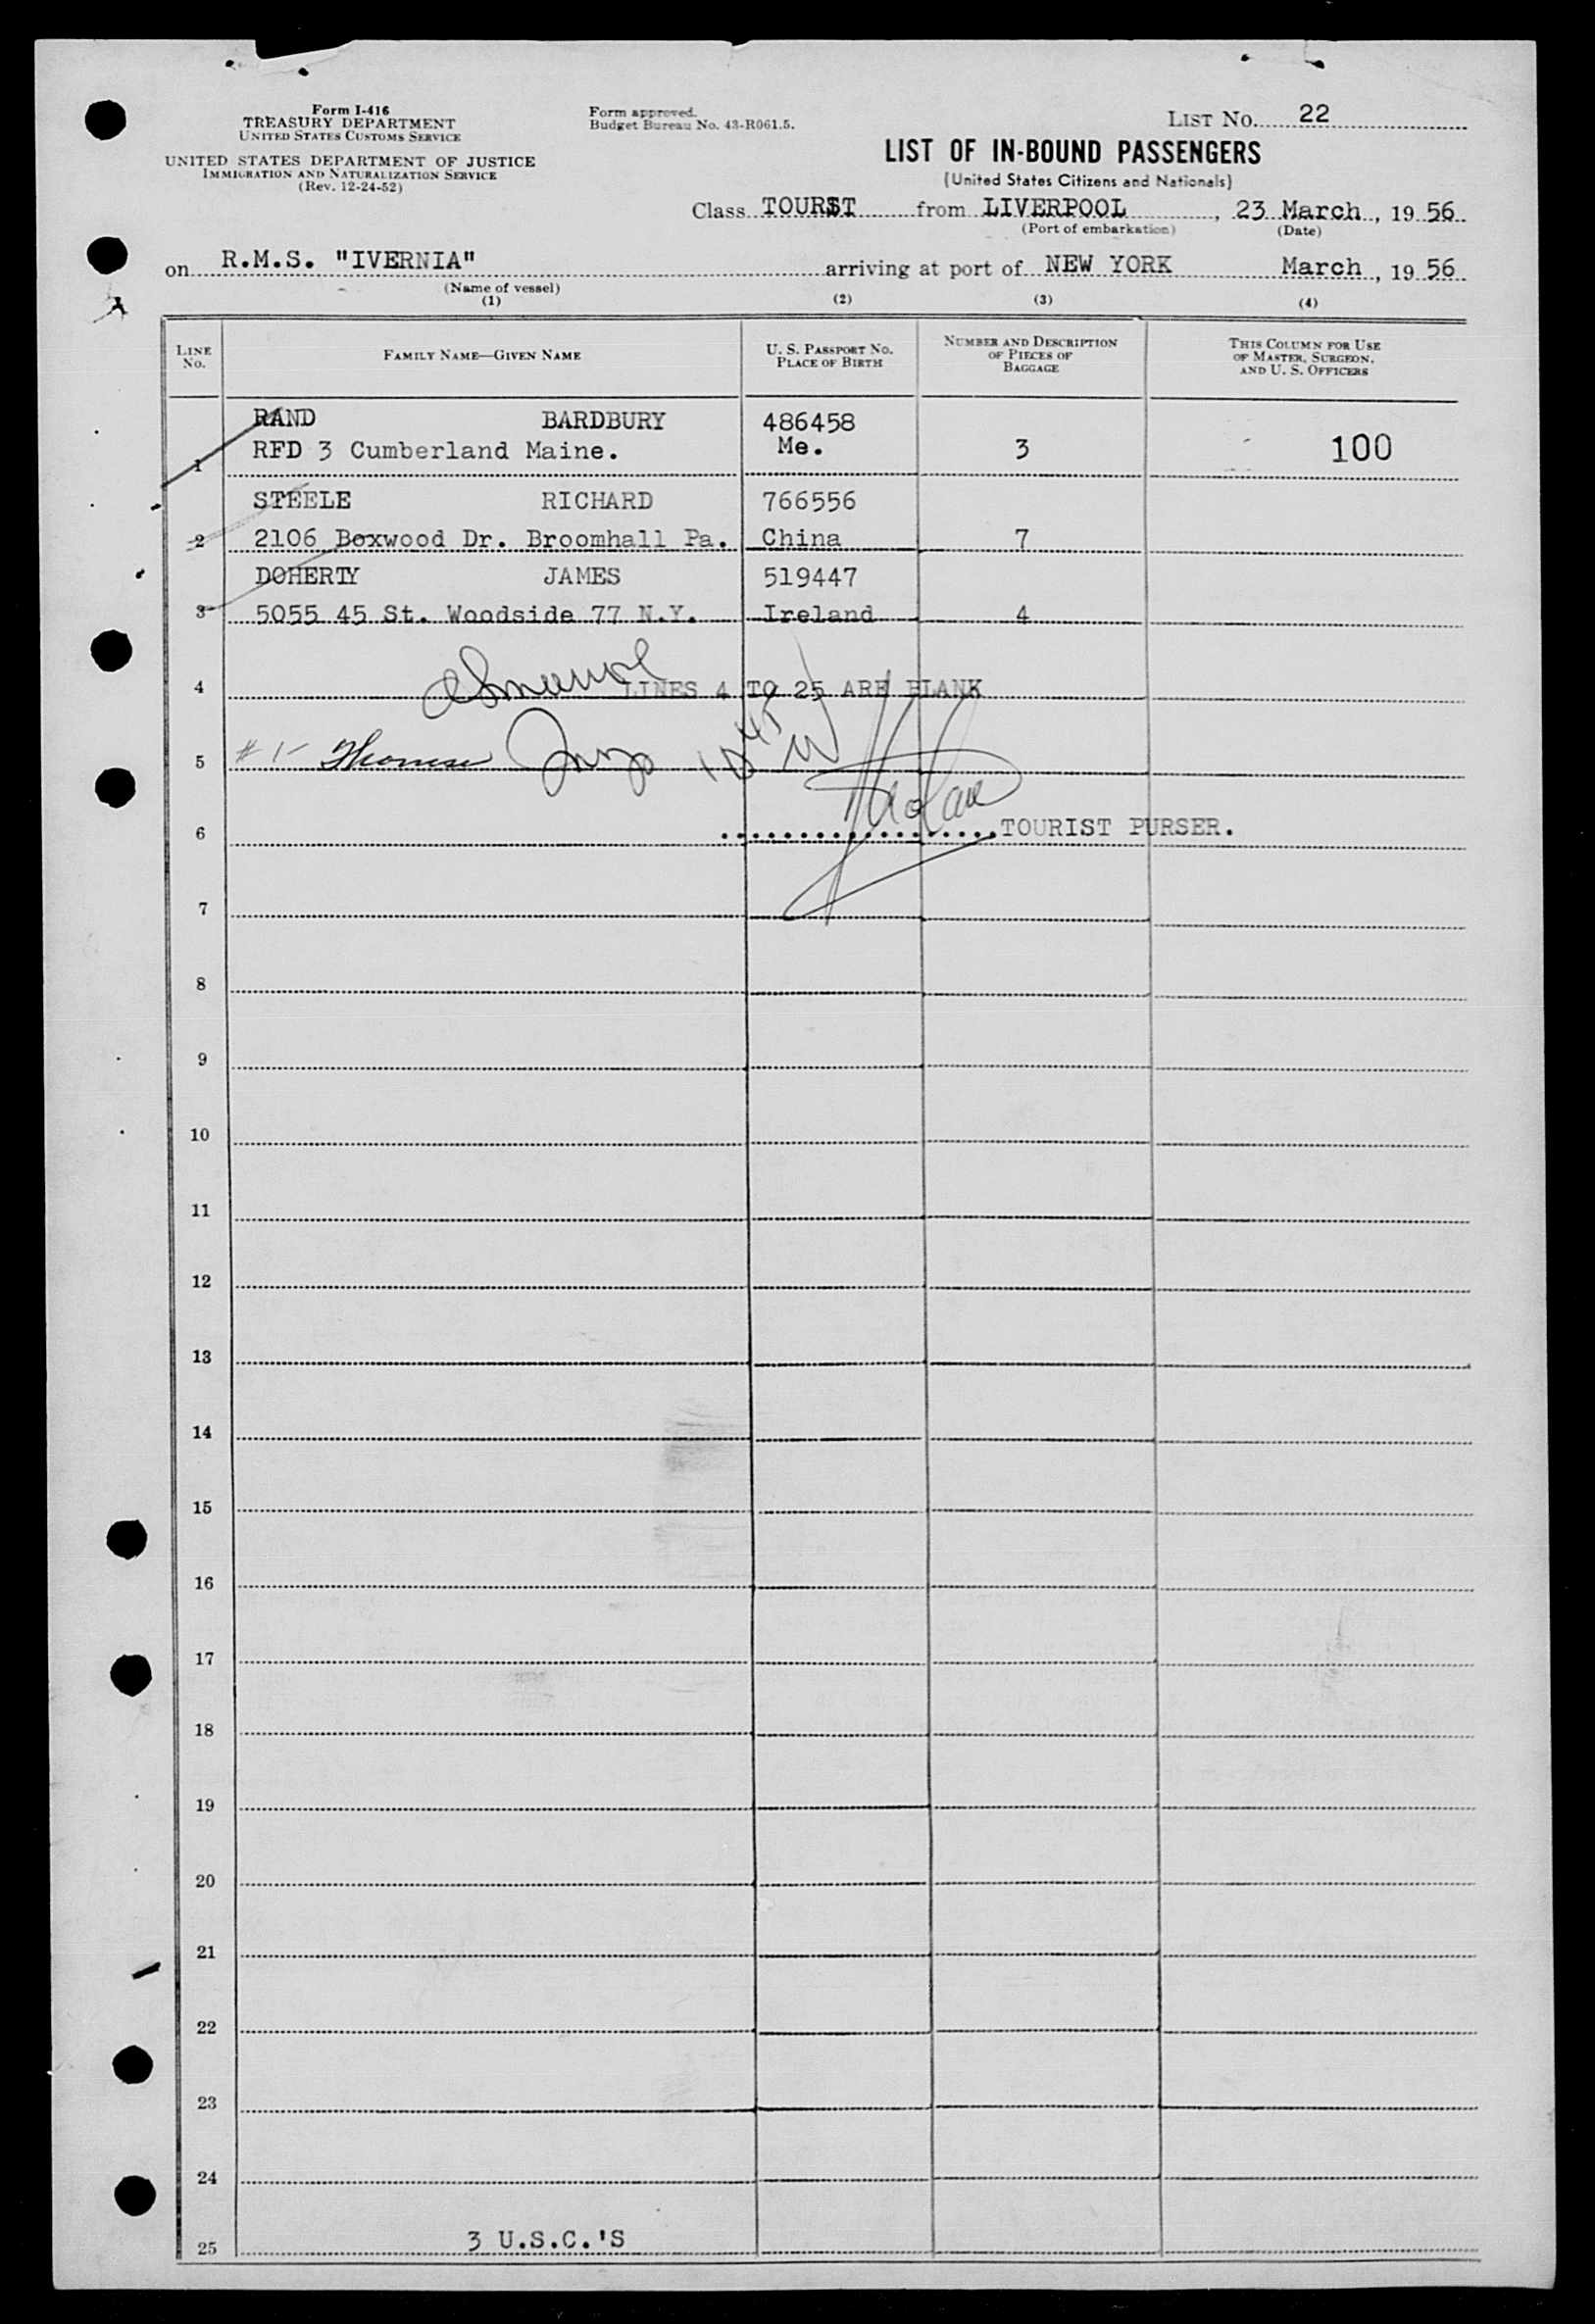 Form I-416
TREASURY DEPARTMENT
UNITED STATES CUSTOMS SERVICE
UNITED STATES DEPARTMENT OF JUSTICE
IMMIGRATION AND NATURALIZATION SERVICE
(Rev. 12-24-52)
Form approved.
Budget Bureau No. 43-R061.5.
LIST NO. 22
LIST OF IN-BOUND PASSENGERS
(United States Citizens and Nationals)
Class TOURST from LIVERPOOL, 23 March, 19 56
(Port of embarkation) (Date)
on R.M.S. "IVERNIA" arriving at port of NEW YORK March, 19 56
(Name of vessel)
(1) (2) (3) (4)
LINE NO. FAMILY NAME—GIVEN NAME U. S. PASSPORT NO. PLACE OF BIRTH NUMBER AND DESCRIPTION OF PIECES OF BAGGAGE THIS COLUMN FOR USE OF MASTER, SURGEON, AND U. S. OFFICERS
RAND BARDBURY 486458
1 RFD 3 Cumberland Maine. Me. 3 100
STEELE RICHARD 766556
2 2106 Boxwood Dr. Broomhall Pa. China 7
DOHERTY JAMES 519447
3 5055 45 St. Woodside 77 N.Y. Ireland 4
4 LINES 4 TO 25 ARE BLANK
5 # 1-
6 TOURIST PURSER.
7
8
9
10
11
12
13
14
15
16
17
18
19
20
21
22
23
24
25 3 U.S.C.'S